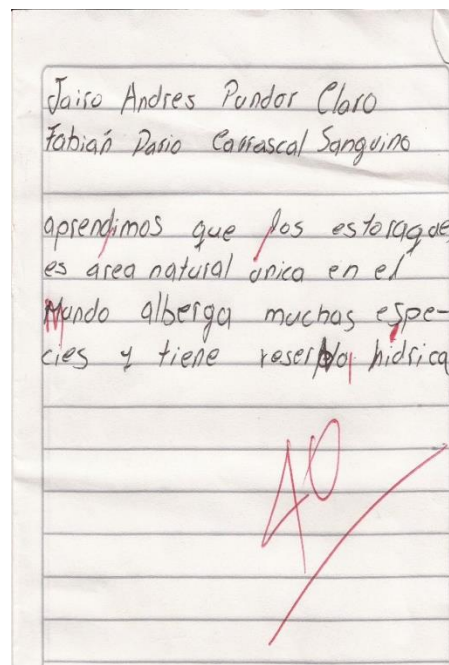 Jairo Andres Pundor Claro
Fabián Dario Carrascal Sanguino
aprendimos que los estoraque
es area natural única en el
Mundo alberga muchas espe-
cies y tiene hídrica
40